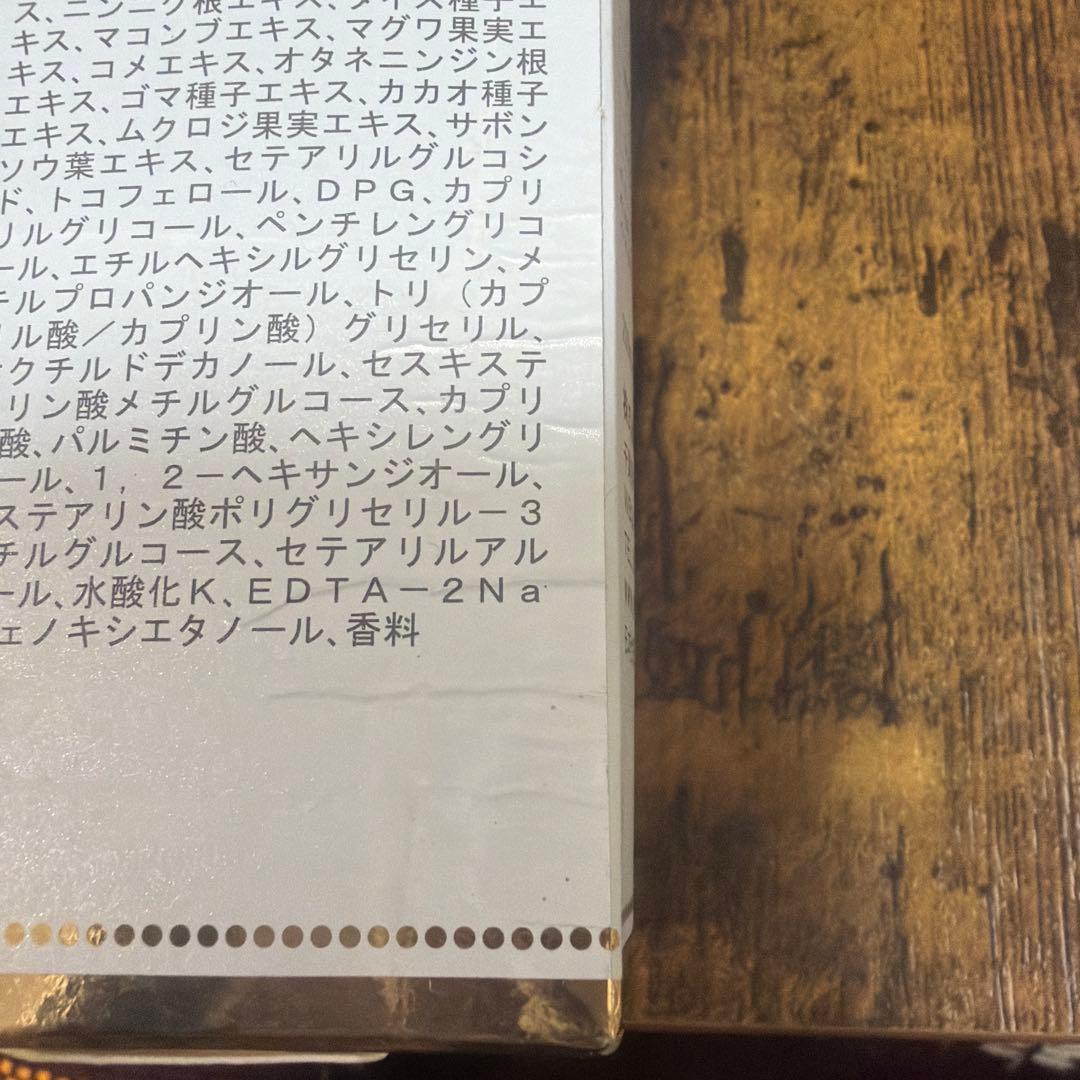 ス、ニンニク根エキス、ダイズ種子エ
キス、マコンブエキス、マグワ果実エ
キス、コメエキス、オタネニンジン根
エキス、ゴマ種子エキス、カカオ種子
エキス、ムクロジ果実エキス、サボン
ソウ葉エキス、セテアリルグルコシ
ド、トコフェロール、DPG、カプリ
リルグリコール、ペンチレングリコ
ール、エチルヘキシルグリセリン、メ
チルプロパンジオール、トリ（カプ
リル酸／カプリン酸）グリセリル、
オクチルドデカノール、セスキステ
アリン酸メチルグルコース、カプリ
酸、パルミチン酸、ヘキシレングリ
ール、1，2－ヘキサンジオール、
ステアリン酸ポリグリセリル－3
チルグルコース、セテアリルアル
ール、水酸化K、EDTA－2Na
ェノキシエタノール、香料